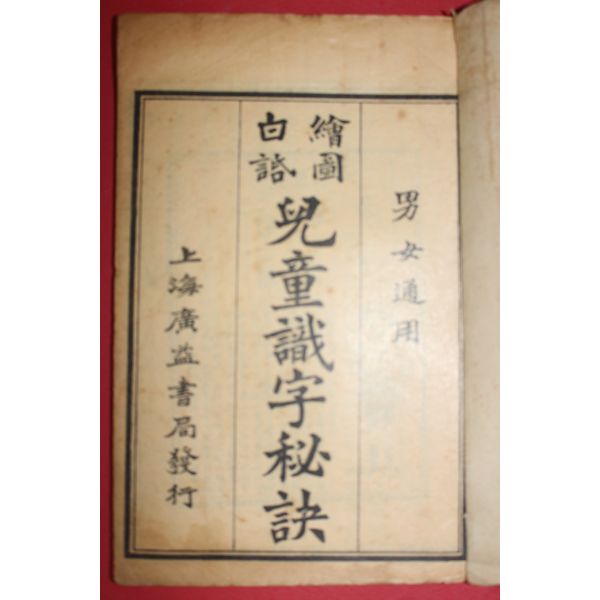 男女通用
繪圖
白話
兒童識字秘訣
上海廣益書局發行